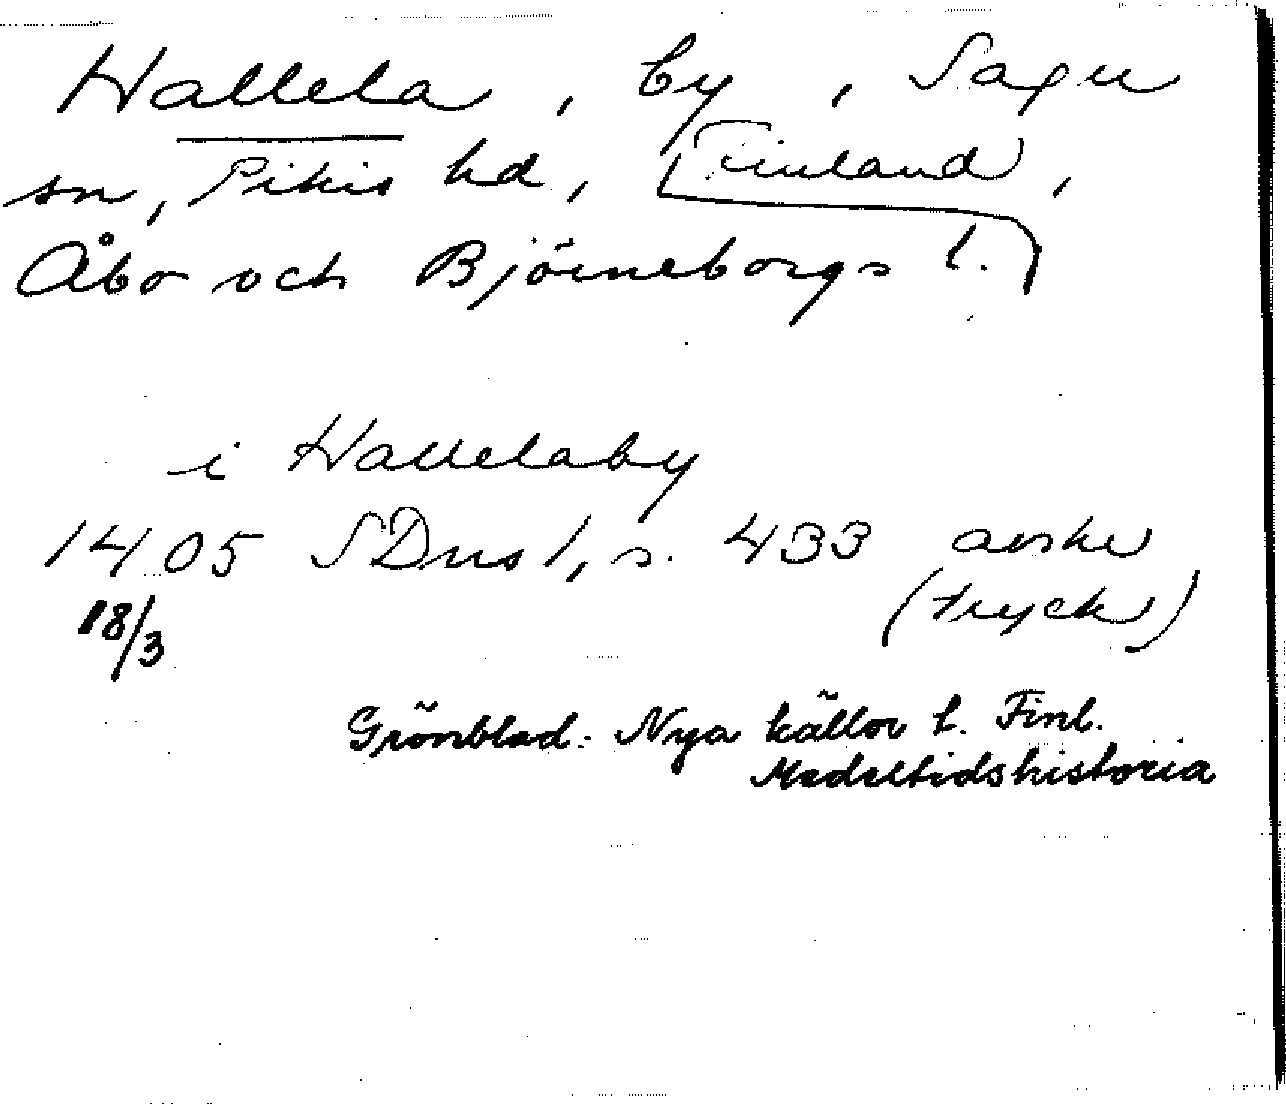 Hallela, by, Sagu
sn, Pikis hd, Finland,
Åbo och Björneborgs l.
i Hallelaby
1405 SDns 1, s. 433 avskr
18/3 (tryck)
Grönblad: Nya källor t. Finl.
Medeltidshistoria